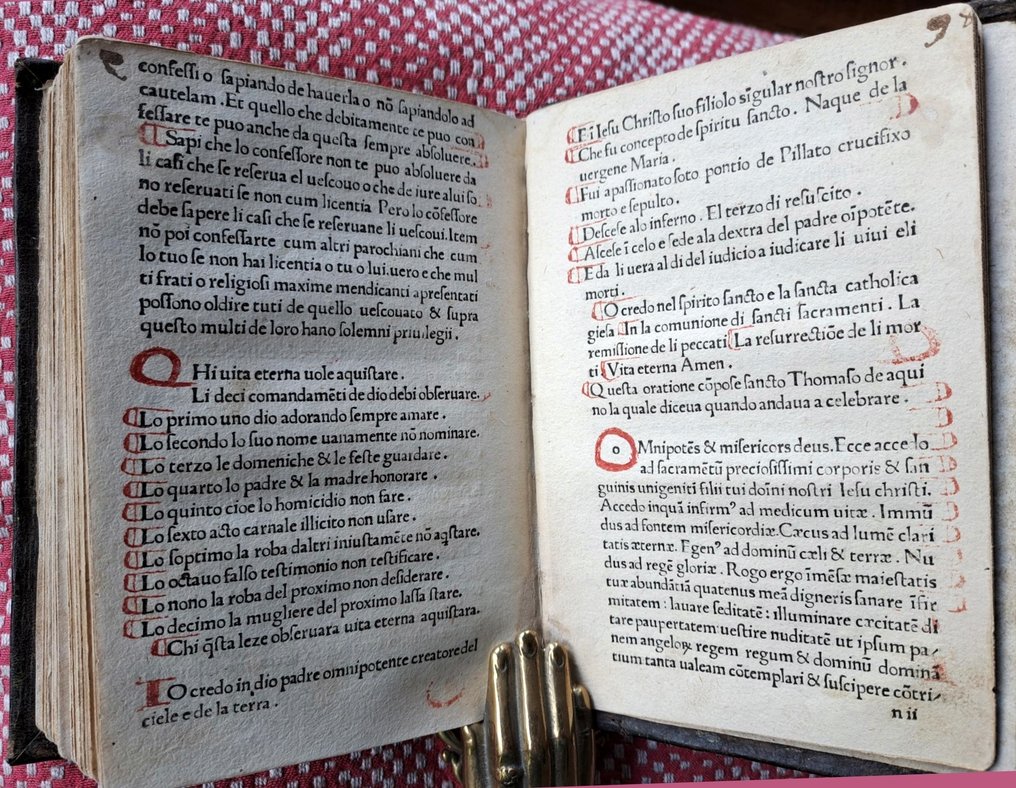 confessi o sapiando de hauerla o nõ sapiandolo ad
cautelam . Et quello che debitamente te puo con
fessare te puo anche da questa sempre absoluere.
Sapi che lo confessore non te puo absoluere da
li casi che se reserua el uescouo o che de iure alui so
no reseruati se non cum licentia Pero lo cõfessore
debe sapere li casi che se reseruane li uescoui. Item
nõ poi confessarte cum altri parochiani che cum
lo tuo se non hai licentia o tu o lui. uero e che mul
ti frati o religiosi maxime mendicanti apresentati
possono oldire tuti de quello uescouato & supra
questo multi de loro hano solemni priuilegii.
Q Hi uita eterna uole aquistare.
Li deci comandamẽti de dio debi obseruare.
Lo primo uno dio adorando sempre amare.
Lo secondo lo suo nome uanamente nõ nominare.
Lo terzo le domeniche & le feste guardare.
Lo quarto lo padre & la madre honorare .
Lo quinto cioe lo homicidio non fare.
Lo sexto acto carnale illicito non usare.
Lo septimo la roba daltri iniustamẽte nõ aq̃stare.
Lo octauo falso testimonio non testificare.
Lo nono la roba del proximo non desiderare.
Lo decimo la mugliere del proximo lassa stare.
Chi q̃sta leze obseruara uita eterna aquistara.
IO credo in dio padre omnipotente creatore del
ciele e de la terra .
E i Iesu Christo suo filiolo sĩgular nostro signor.
Che fu concepto de spiritu sancto. Naque de la
uergene Maria .
Fui apassionato soto pontio de Pillato crucifixo
morto e sepulto.
Descese alo inferno . El terzo di resuscito .
Ascese ĩ celo e sede ala dextra del padre oĩpotẽte.
E da li uera al di del iudicio a iudicare li uiui e li
morti .
O credo nel spirito sancto e la sancta catholica
giesa In la comunione di sancti sacramenti . La
remissione de li peccati La resurrectiõe de li mor
ti Vita eterna Amen .
Questa oratione cõpose sancto Thomaso de aqui
no la quale diceua quando andaua a celebrare .
o Mnipotẽs & misericors deus. Ecce acce lo
ad sacramẽtũ preciosissimi corporis & san
guinis unigeniti filii tui doĩni nostri Iesu christi.
Accedo inquã infirmꝰ ad medicum uitæ . Immũ
dus ad fontem misericordiæ. Cæcus ad lumẽ clari
tatis æternæ. Egenꝰ ad dominũ cæli & terræ . Nu
dus ad regẽ gloriæ . Rogo ergo ĩmẽsæ maiestatis
tuæ abundãtiã quatenus meã digneris sanare ĩfir
mitatem : lauare feditatẽ : illuminare cæcitatẽ di
tare paupertatem uestire nuditatẽ ut ipsum pa/
nem angeloꝝ regem regum & dominũ dominã
tium tanta ualeam cõtemplari & suscipere cõtri/
n ii